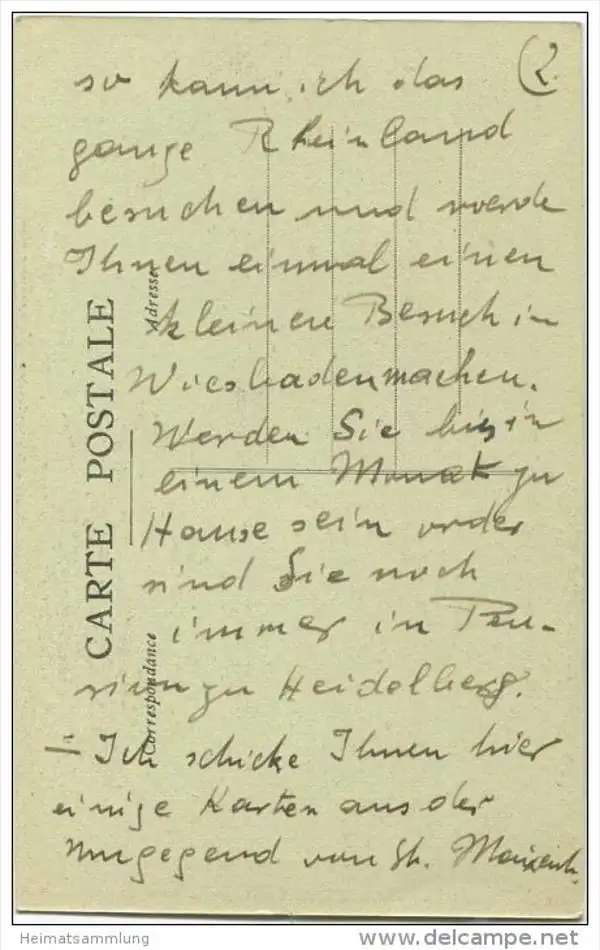 (2.
so kann ich das
ganze Rheinland
besuchen und werde
Ihnen einmal einen
kleinen Besuch in
Wiesbaden machen.
Werden Sie bis in
einem Monat zu
Hause sein oder
sind Sie noch
immer in Pen-
sion zu Heidelberg.
= Ich schicke Ihnen hier
einige Karten aus der
Umgegend von St. Maixent.
CARTE POSTALE
Correspondance
Adresse
Heimatsammlung
www.delcampe.net